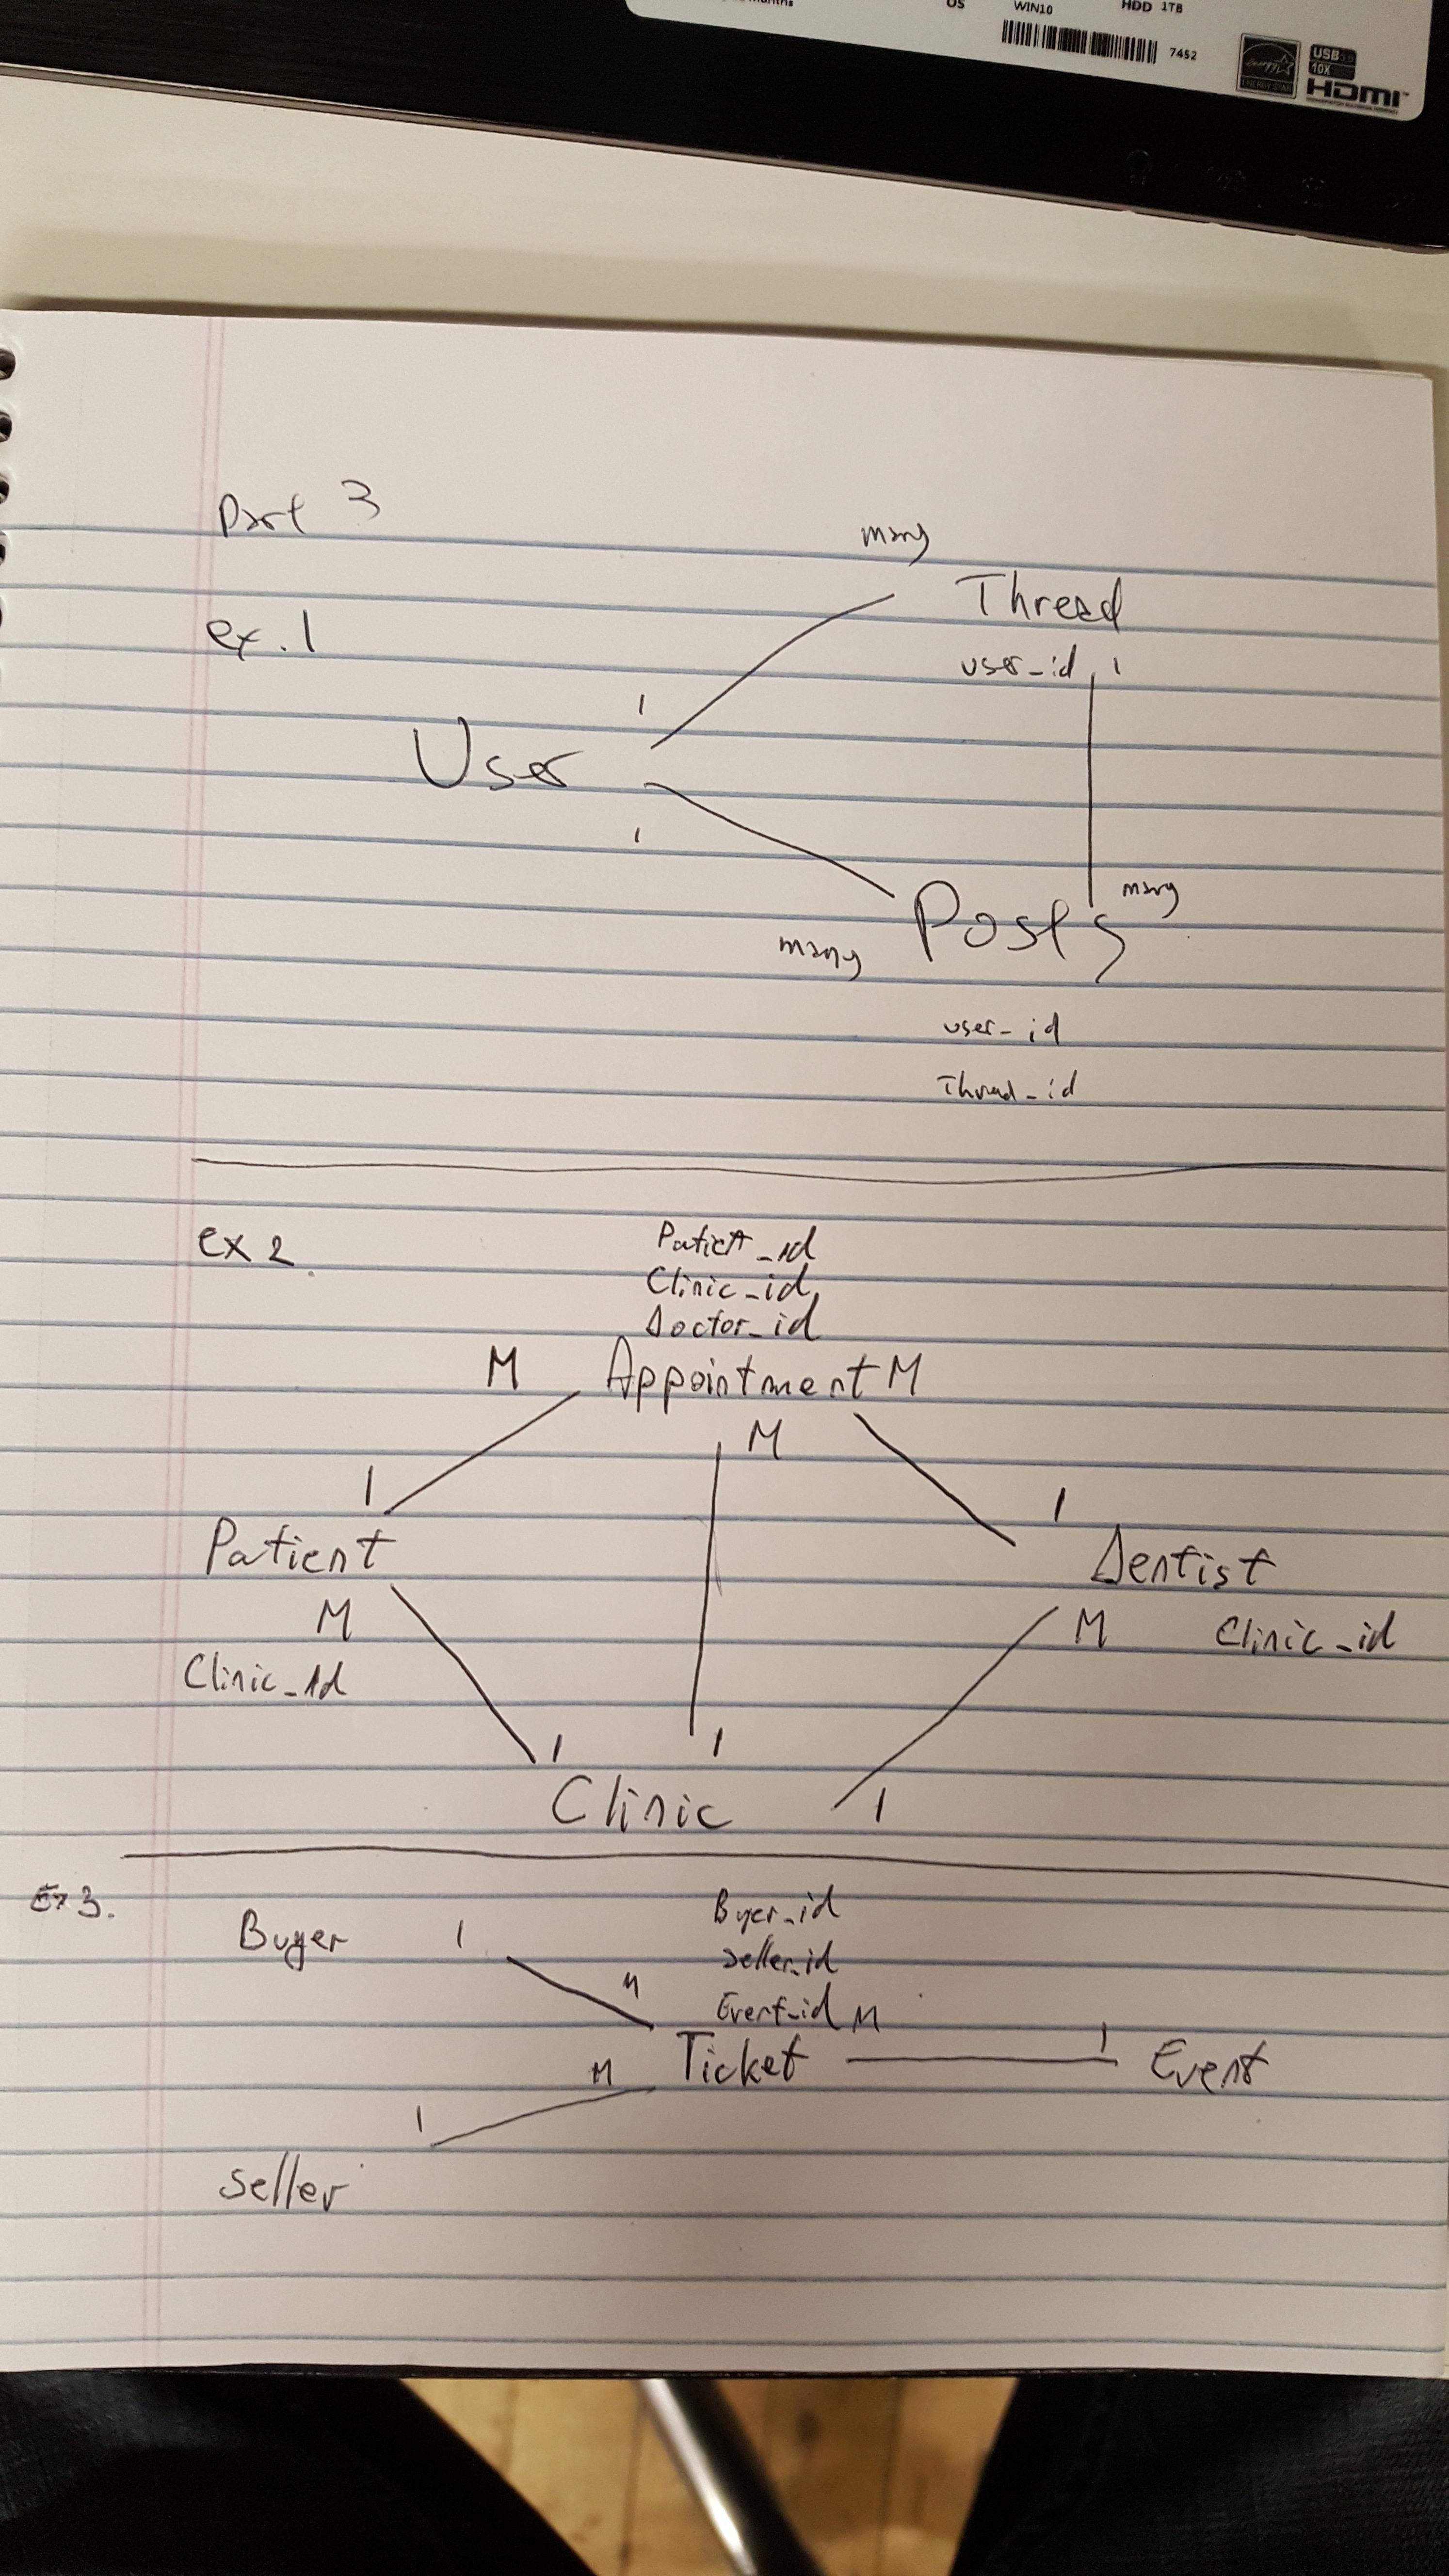 OS WIN10 HDD 1TB
7452
USB
10X
HDMI
Part 3
many
Thread
ex.1
user_id 1
1
User
1
many
Posts
many
user_id
Thread_id
ex 2.
Patient_id
Clinic_id
Doctor_id
M Appointment M
M
1
1
Patient
Dentist
M
M Clinic_id
Clinic_Id
1 1
Clinic 1
Ex 3.
Buyer 1
Byer_id
Seller_id
M
Event_id M
Ticket
1
Event
M
1
Seller